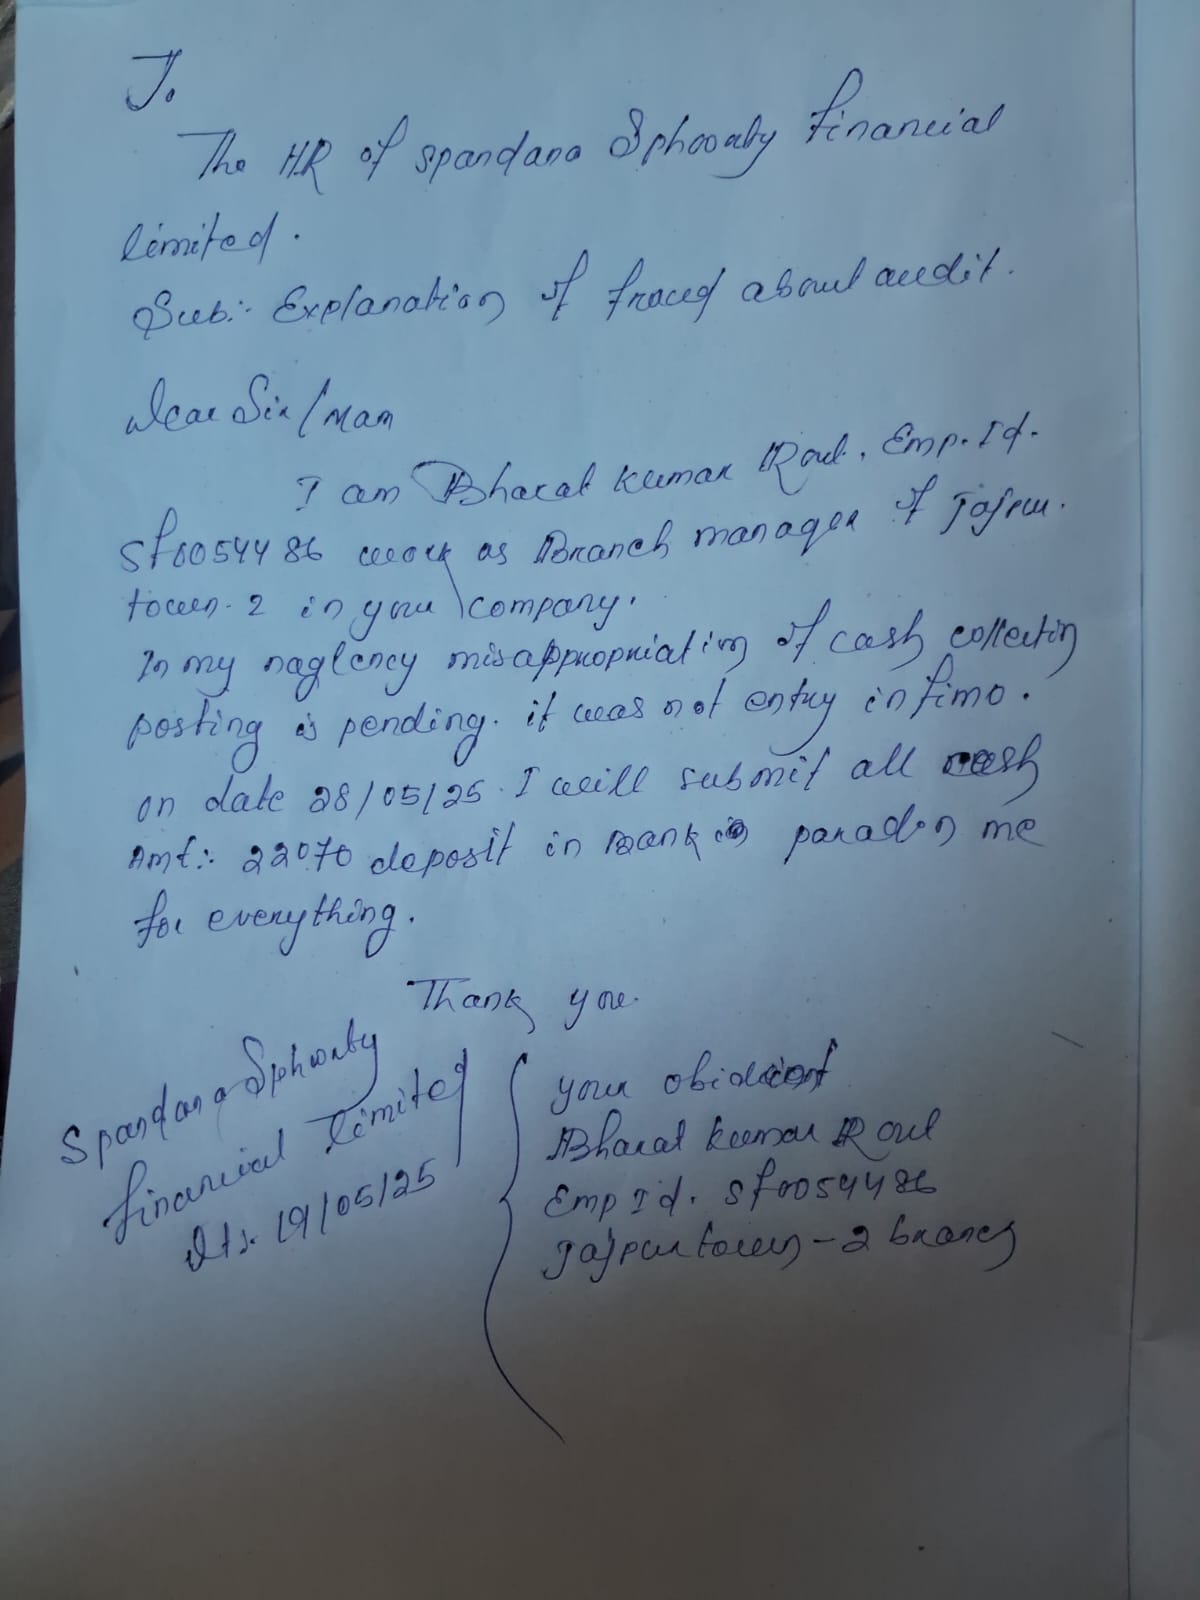 To
The HR of spandana Sphoorty financial
limited.
Sub:- Explanation of fraud about audit.
Dear Sir/Mam
I am Bharat kumar Rout, Emp. Id.
Sf0054486 work as Branch manager of Jajpur.
town-2 in your company.
In my naglency misappropriating of cash collectin
posting is pending. it was not entry in fimo.
on date 28/05/25. I will submit all cash
Amt:- 22070 deposit in Bank paradon me
for everything.
Thank you.
Spandana Sphoorty
financial limited
Dt:- 19/05/25
your obidient
Bharat kumar Rout
Emp Id. Sf0054486
Jajpur town-2 branch